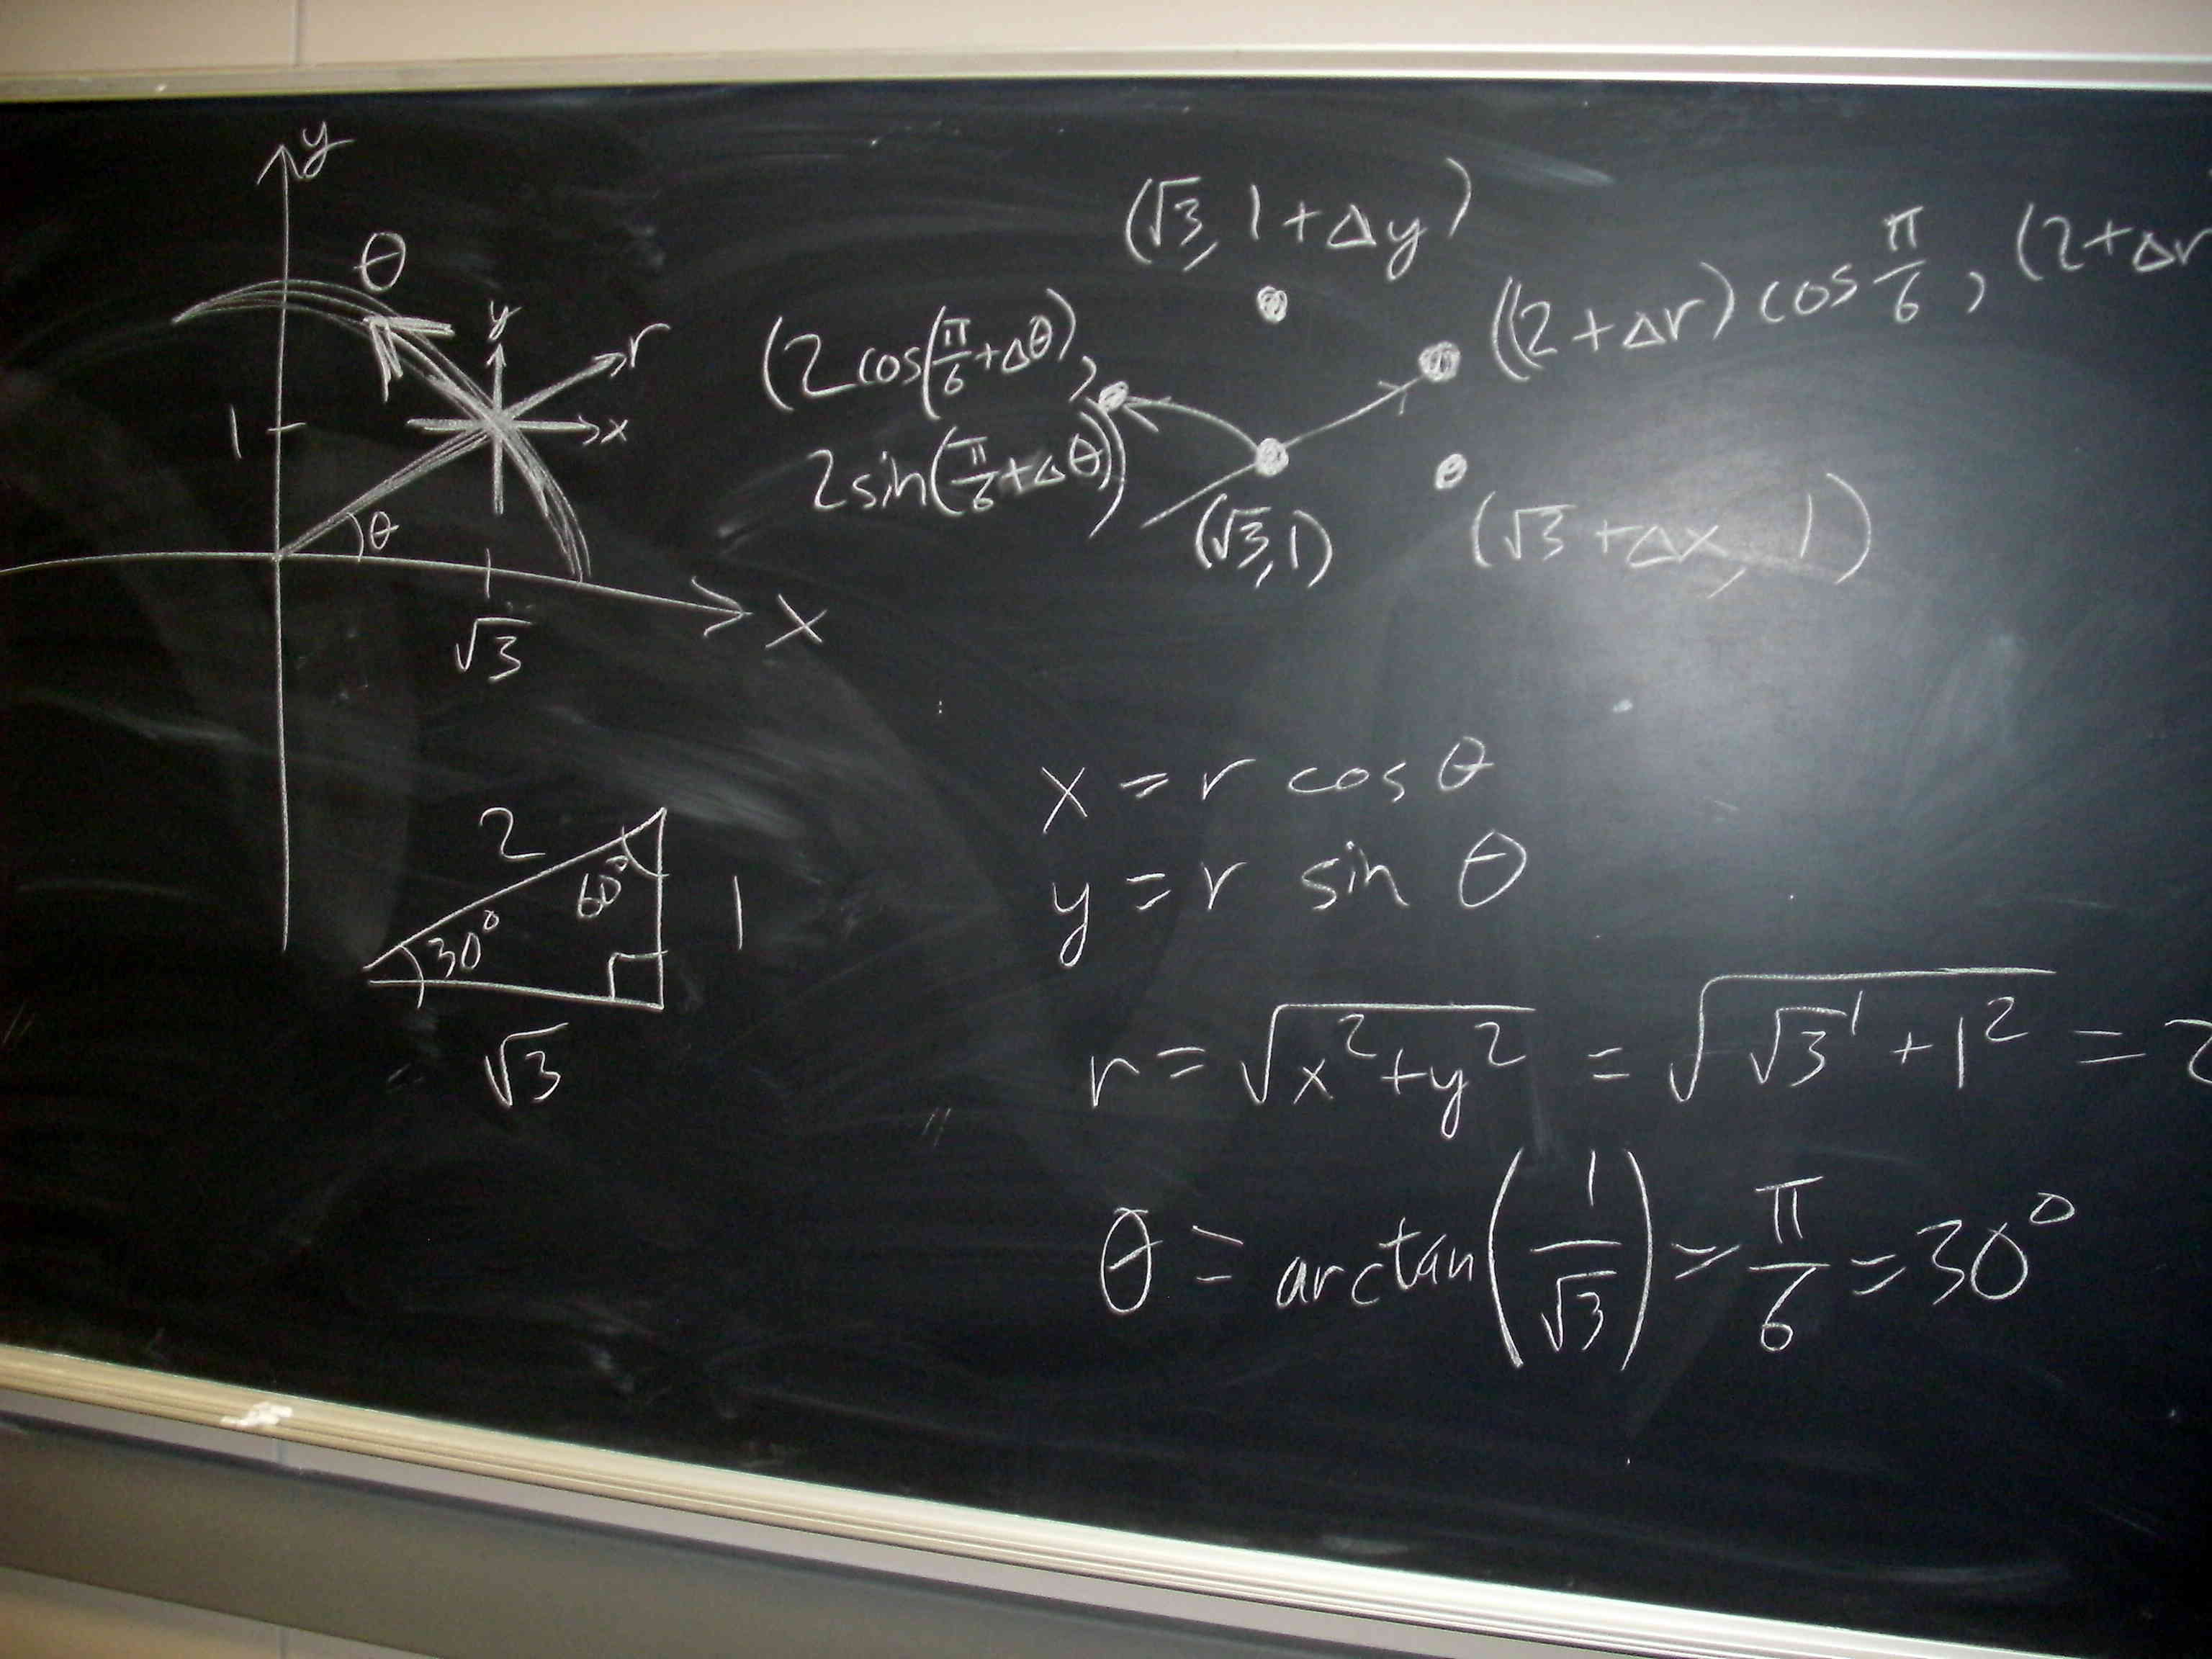 y
θ
y
r
x
1
θ
√3
x
(√3, 1+Δy)
((2+Δr) cos π/6, (2+Δr
(2cos(π/6+Δθ),
2sin(π/6+Δθ))
(√3, 1)
(√3+Δx, 1)
2
60°
30°
1
√3
x = r cos θ
y = r sin θ
r = √(x²+y²) = √(√3¹+1²) = 2
θ = arctan(1/√3) = π/6 = 30°